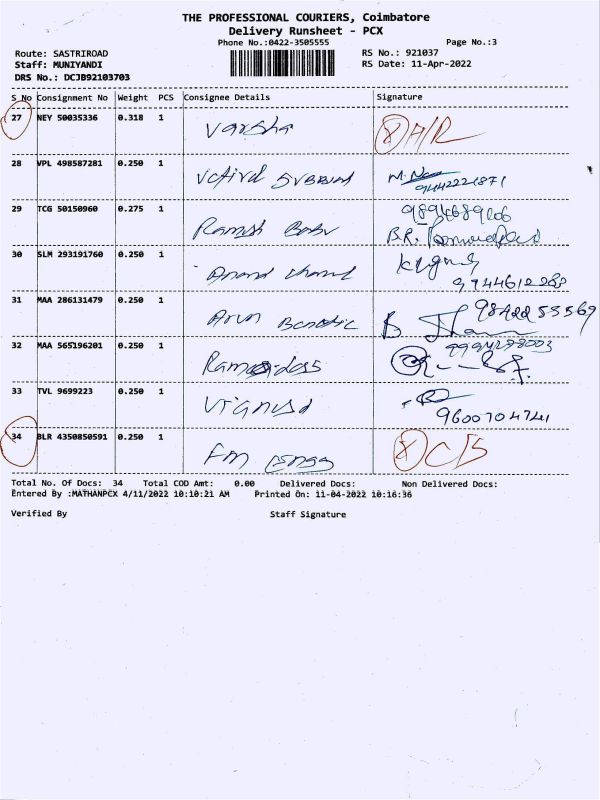 THE PROFESSIONAL COURIERS, Coimbatore
Delivery Runsheet - PCX
Phone No.:0422-3505555
Page No.:3
Route: SASTRIROAD
RS No.: 921037
Staff: MUNIYANDI
RS Date: 11-Apr-2022
DRS No.: DCJB92103703
S No Consignment No Weight PCS Consignee Details Signature
27 NEY 50035336 0.318 1 Varsha
28 VPL 498587281 0.250 1
29 TCG 50150960 0.275 1 Ramesh Babu
30 SLM 293191760 0.250 1 Anand
31 MAA 286131479 0.250 1 Arun
32 MAA 565196201 0.250 1 Ramadoss
33 TVL 9699223 0.250 1 9600704741
34 BLR 4350850591 0.250 1 Fm Engg
Total No. Of Docs: 34 Total COD Amt: 0.00 Delivered Docs: Non Delivered Docs:
Entered By :MATHANPCX 4/11/2022 10:10:21 AM Printed On: 11-04-2022 10:16:36
Verified By Staff Signature